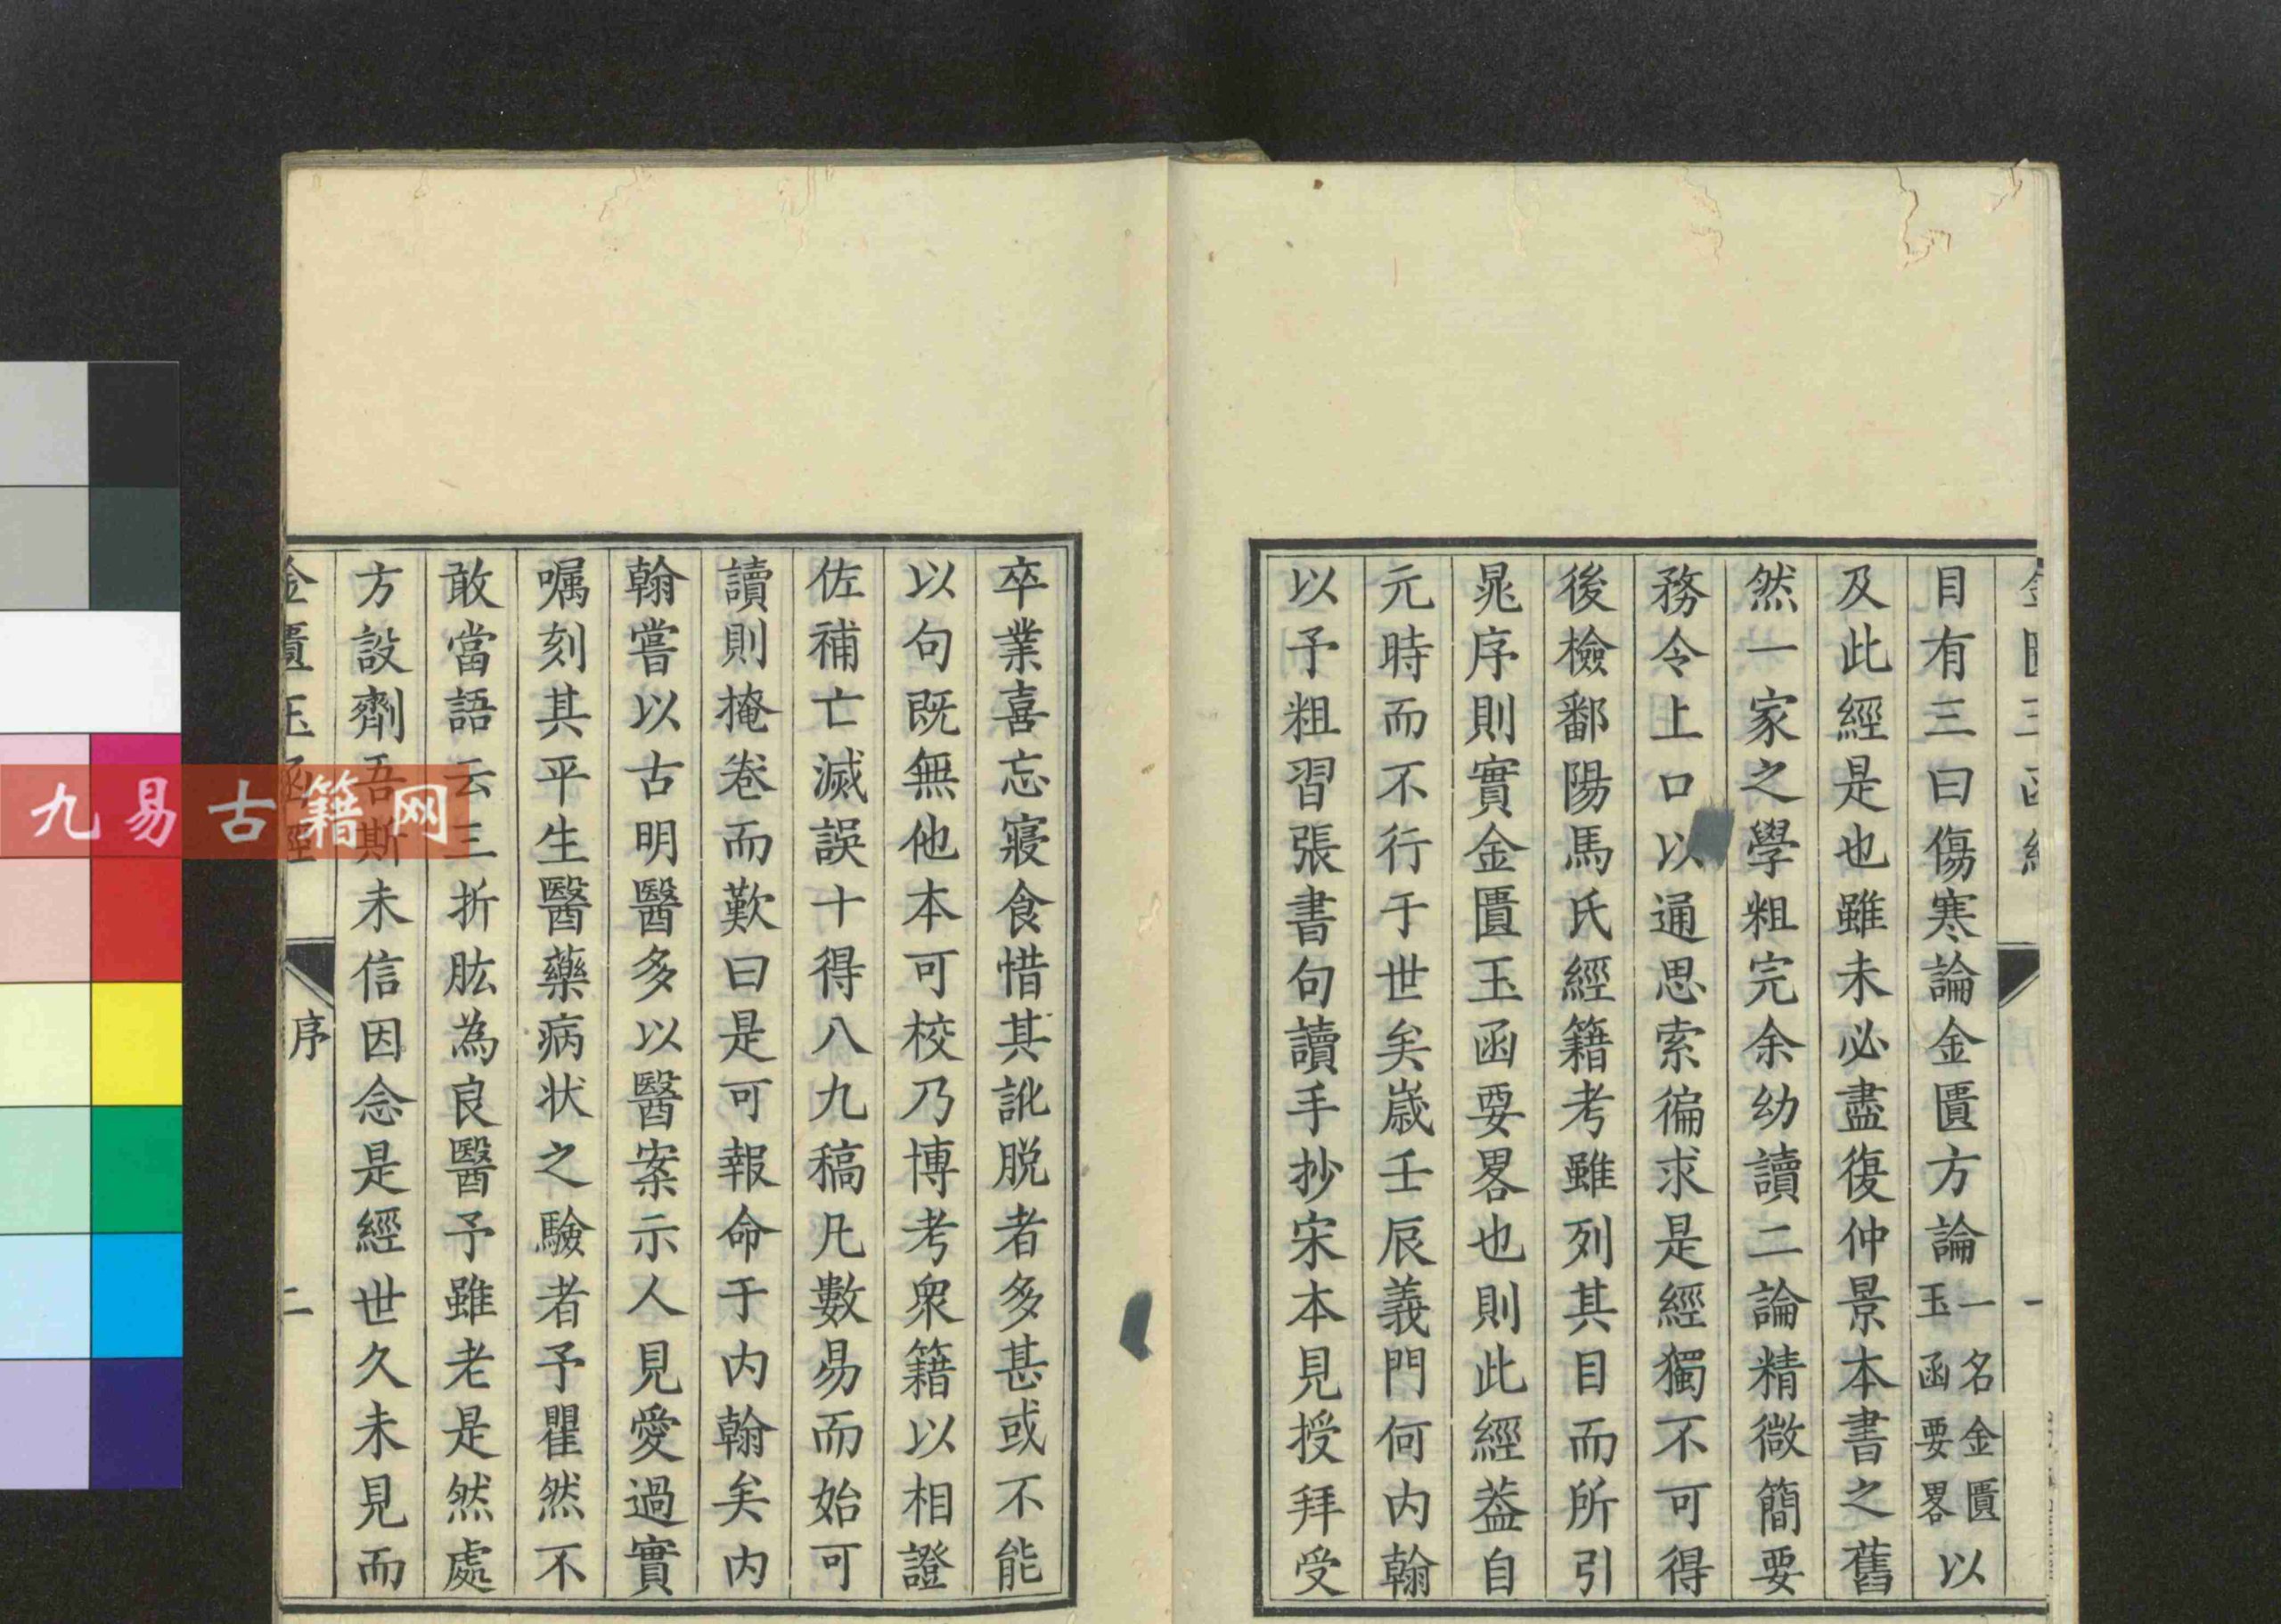 目有三曰傷寒論金匱方論一名金匱玉函要畧以
及此經是也雖未必盡復仲景本書之舊
然一家之學粗完余幼讀二論精微簡要
務令上口以通思索徧求是經獨不可得
後檢鄱陽馬氏經籍考雖列其目而所引
晁序則實金匱玉函要畧也則此經葢自
元時而不行于世矣歲壬辰義門何内翰
以予粗習張書句讀手抄宋本見授拜受
卒業喜忘寢食惜其訛脱者多甚或不能
以句既無他本可校乃博考衆籍以相證
佐補亡滅誤十得八九稿凡數易而始可
讀則掩卷而歎曰是可報命于内翰矣内
翰嘗以古明醫多以醫案示人見愛過實
嘱刻其平生醫藥病状之驗者予瞿然不
敢當語云三折肱為良醫予雖老是然處
方設劑吾斯未信因念是經世久未見而
金匱玉函經 序 二
九易古籍网